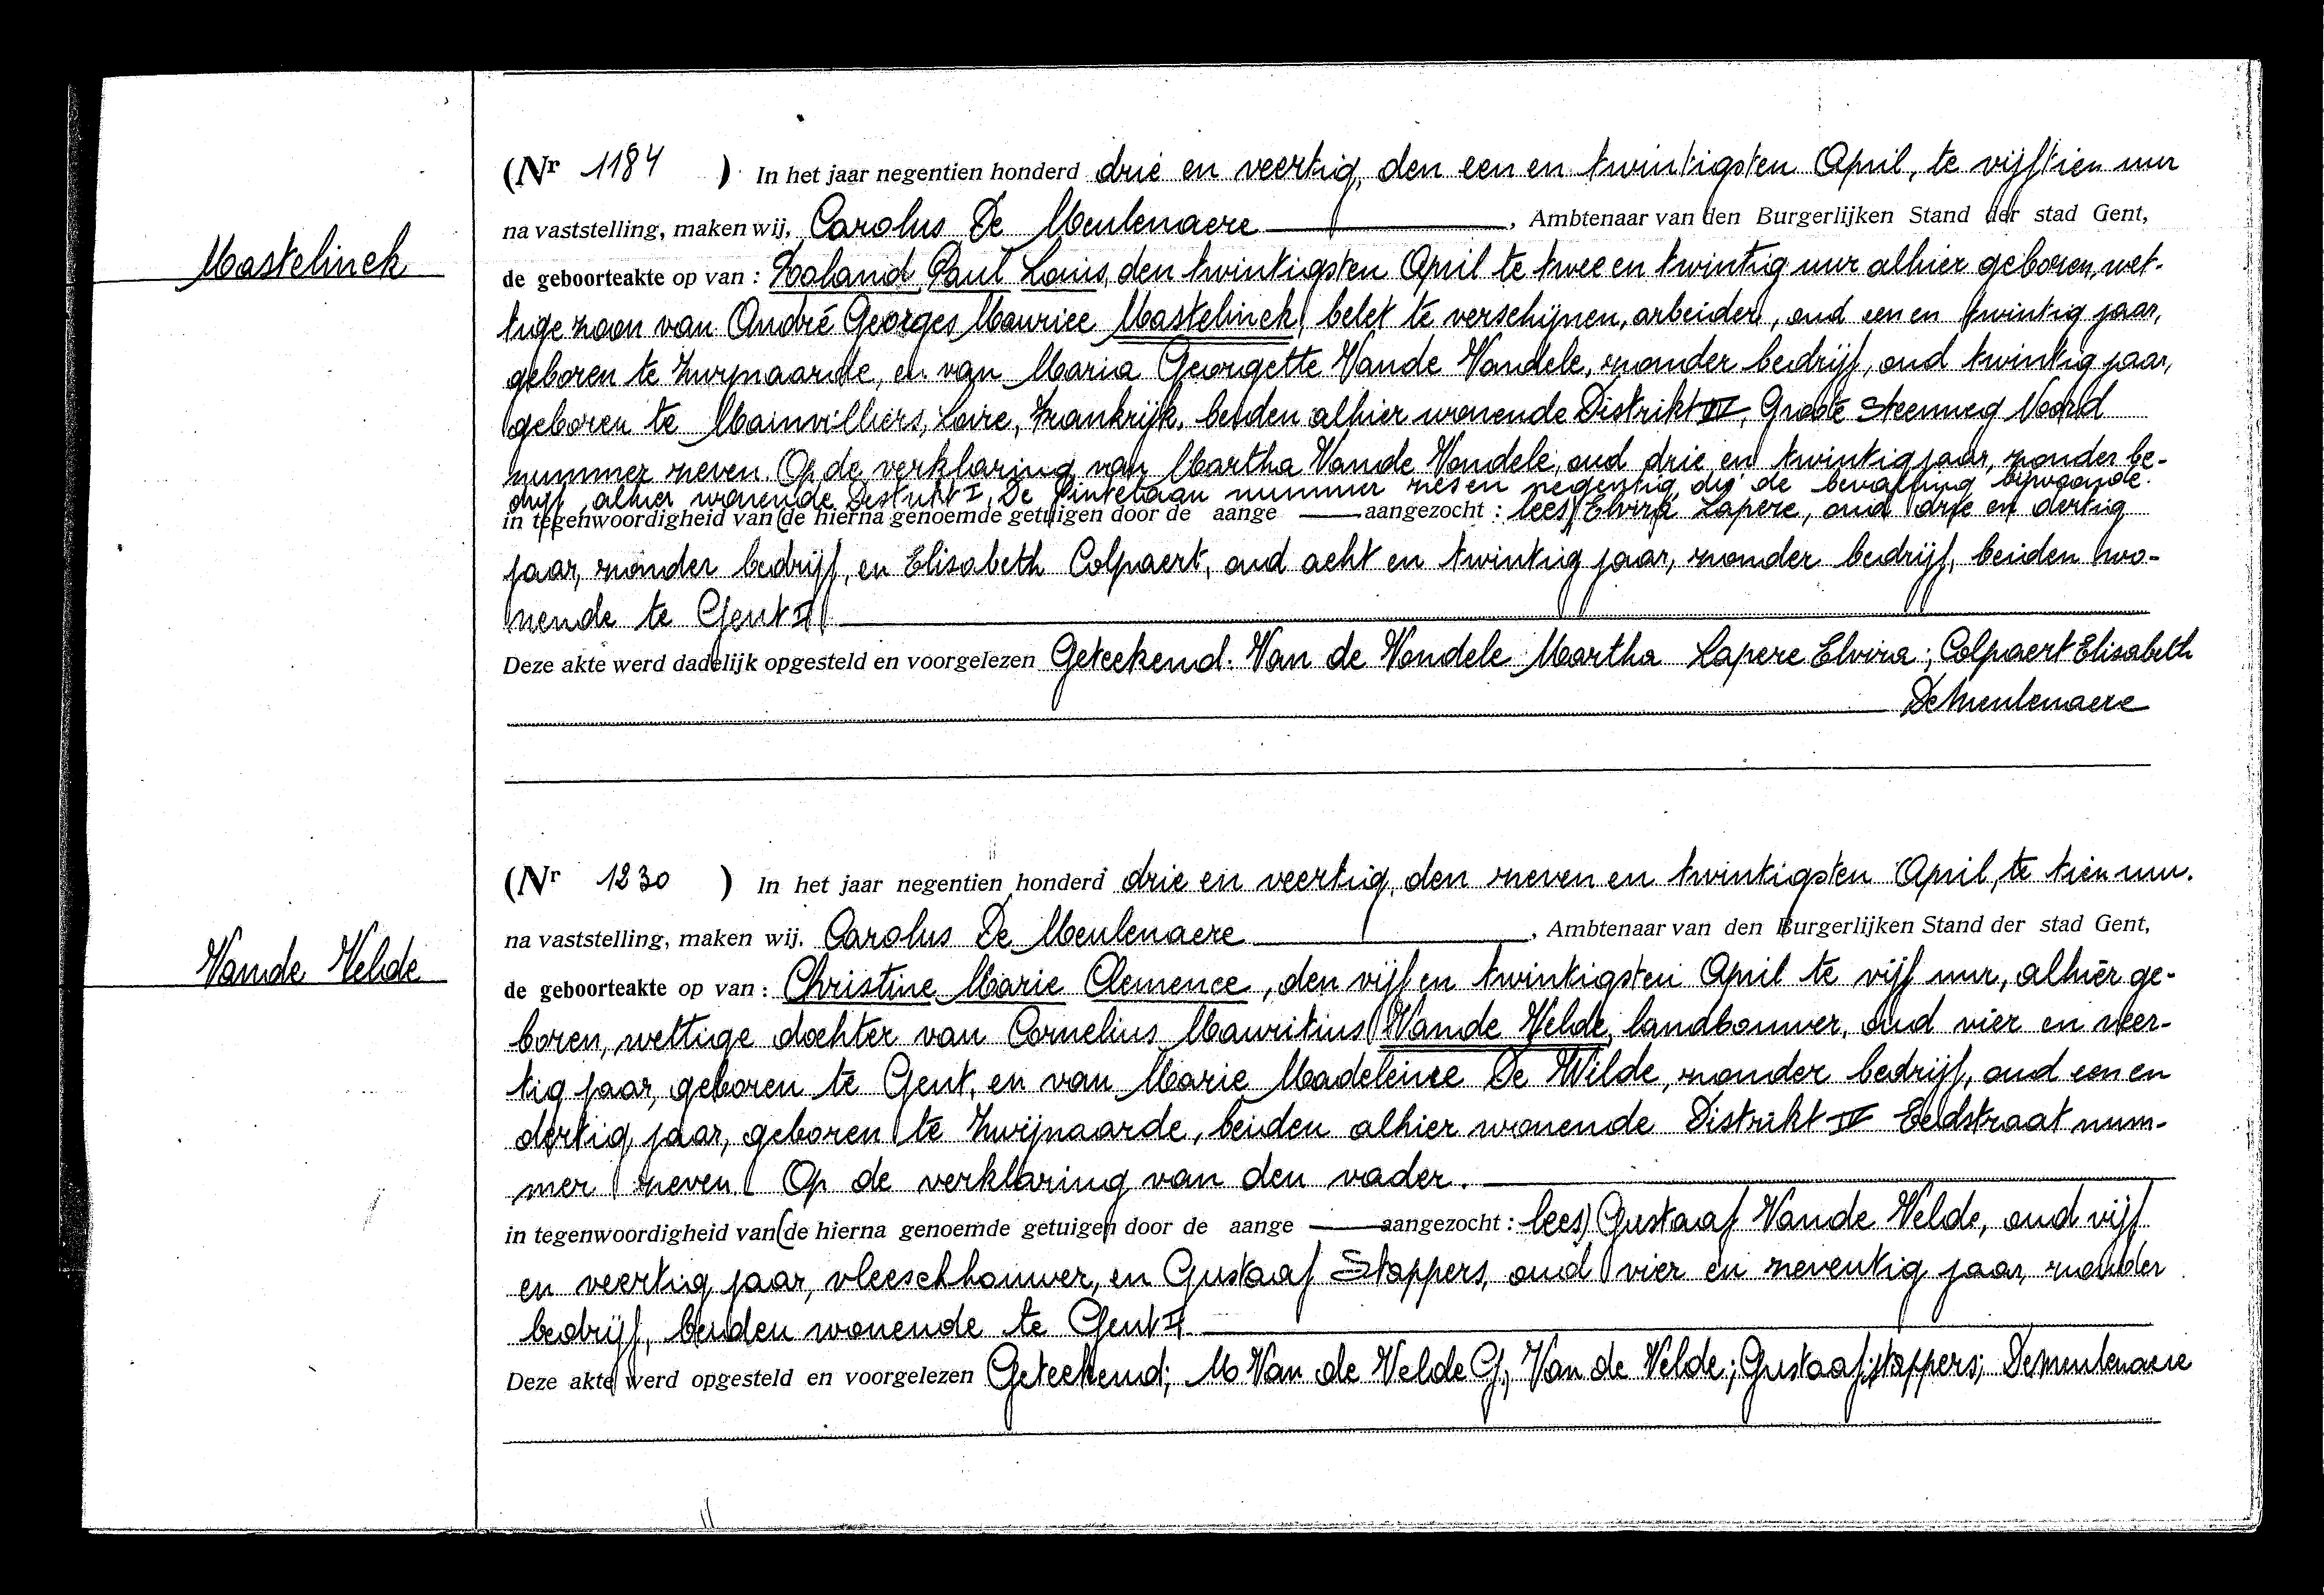 Mastelinck
(Nr 1184 ) In het jaar negentien honderd drie en veertig, den een en twintigsten April, te vijftien uur
na vaststelling, maken wij, Carolus De Meulenaere , Ambtenaar van den Burgerlijken Stand der stad Gent,
de geboorteakte op van : Roland Paul Louis, den twintigsten April te twee en twintig uur alhier geboren, wet-
tige zoon van André Georges Maurice Mastelinck, belet te verschijnen, arbeider, oud een en twintig jaar,
geboren te Zwijnaarde, en van Maria Georgette Vande Vondele, zonder bedrijf, oud twintig jaar,
geboren te Mainvilliers, Loire, Frankrijk, beiden alhier wonende Distrikt IV, Groote Steenweg Noord
nummer zeven. Op de verklaring van Martha Vande Vondele, oud drie en twintig jaar, zonder be-
drijf, alhier wonende Distrikt I, De Pintelaan nummer zes en negentig, die de bevalling bijwoonde.
in tegenwoordigheid van (de hierna genoemde getuigen door de aange aangezocht : lees) Elvira Lapere, oud drie en dertig
jaar, zonder bedrijf, en Elisabeth Colpaert, oud acht en twintig jaar, zonder bedrijf, beiden wo-
nende te Gent II
Deze akte werd dadelijk opgesteld en voorgelezen Geteekend. Van de Vondele Martha Lapere Elvira; Colpaert Elisabeth
De Meulenaere
Vande Velde
(Nr 1230 ) In het jaar negentien honderd drie en veertig, den zeven en twintigsten April, te tien uur.
na vaststelling, maken wij, Carolus De Meulenaere , Ambtenaar van den Burgerlijken Stand der stad Gent,
de geboorteakte op van : Christine Marie Clemence, den vijf en twintigsten April te vijf uur, alhier ge-
boren, wettige dochter van Cornelius Mauritius Vande Velde, landbouwer, oud vier en veer-
tig jaar, geboren te Gent, en van Marie Madeleine De Wilde, zonder bedrijf, oud een en
dertig jaar, geboren te Zwijnaarde, beiden alhier wonende Distrikt IV Eedstraat num-
mer zeven. Op de verklaring van den vader.
in tegenwoordigheid van (de hierna genoemde getuigen door de aange aangezocht : lees) Gustaaf Vande Velde, oud vijf
en veertig jaar, vleeschhouwer, en Gustaaf Stappers, oud vier en zeventig jaar, zonder
bedrijf, beiden wonende te Gent II
Deze akte werd opgesteld en voorgelezen Geteekend; M Van de Velde G, Van de Velde; Gustaaf Stappers; De Meulenaere